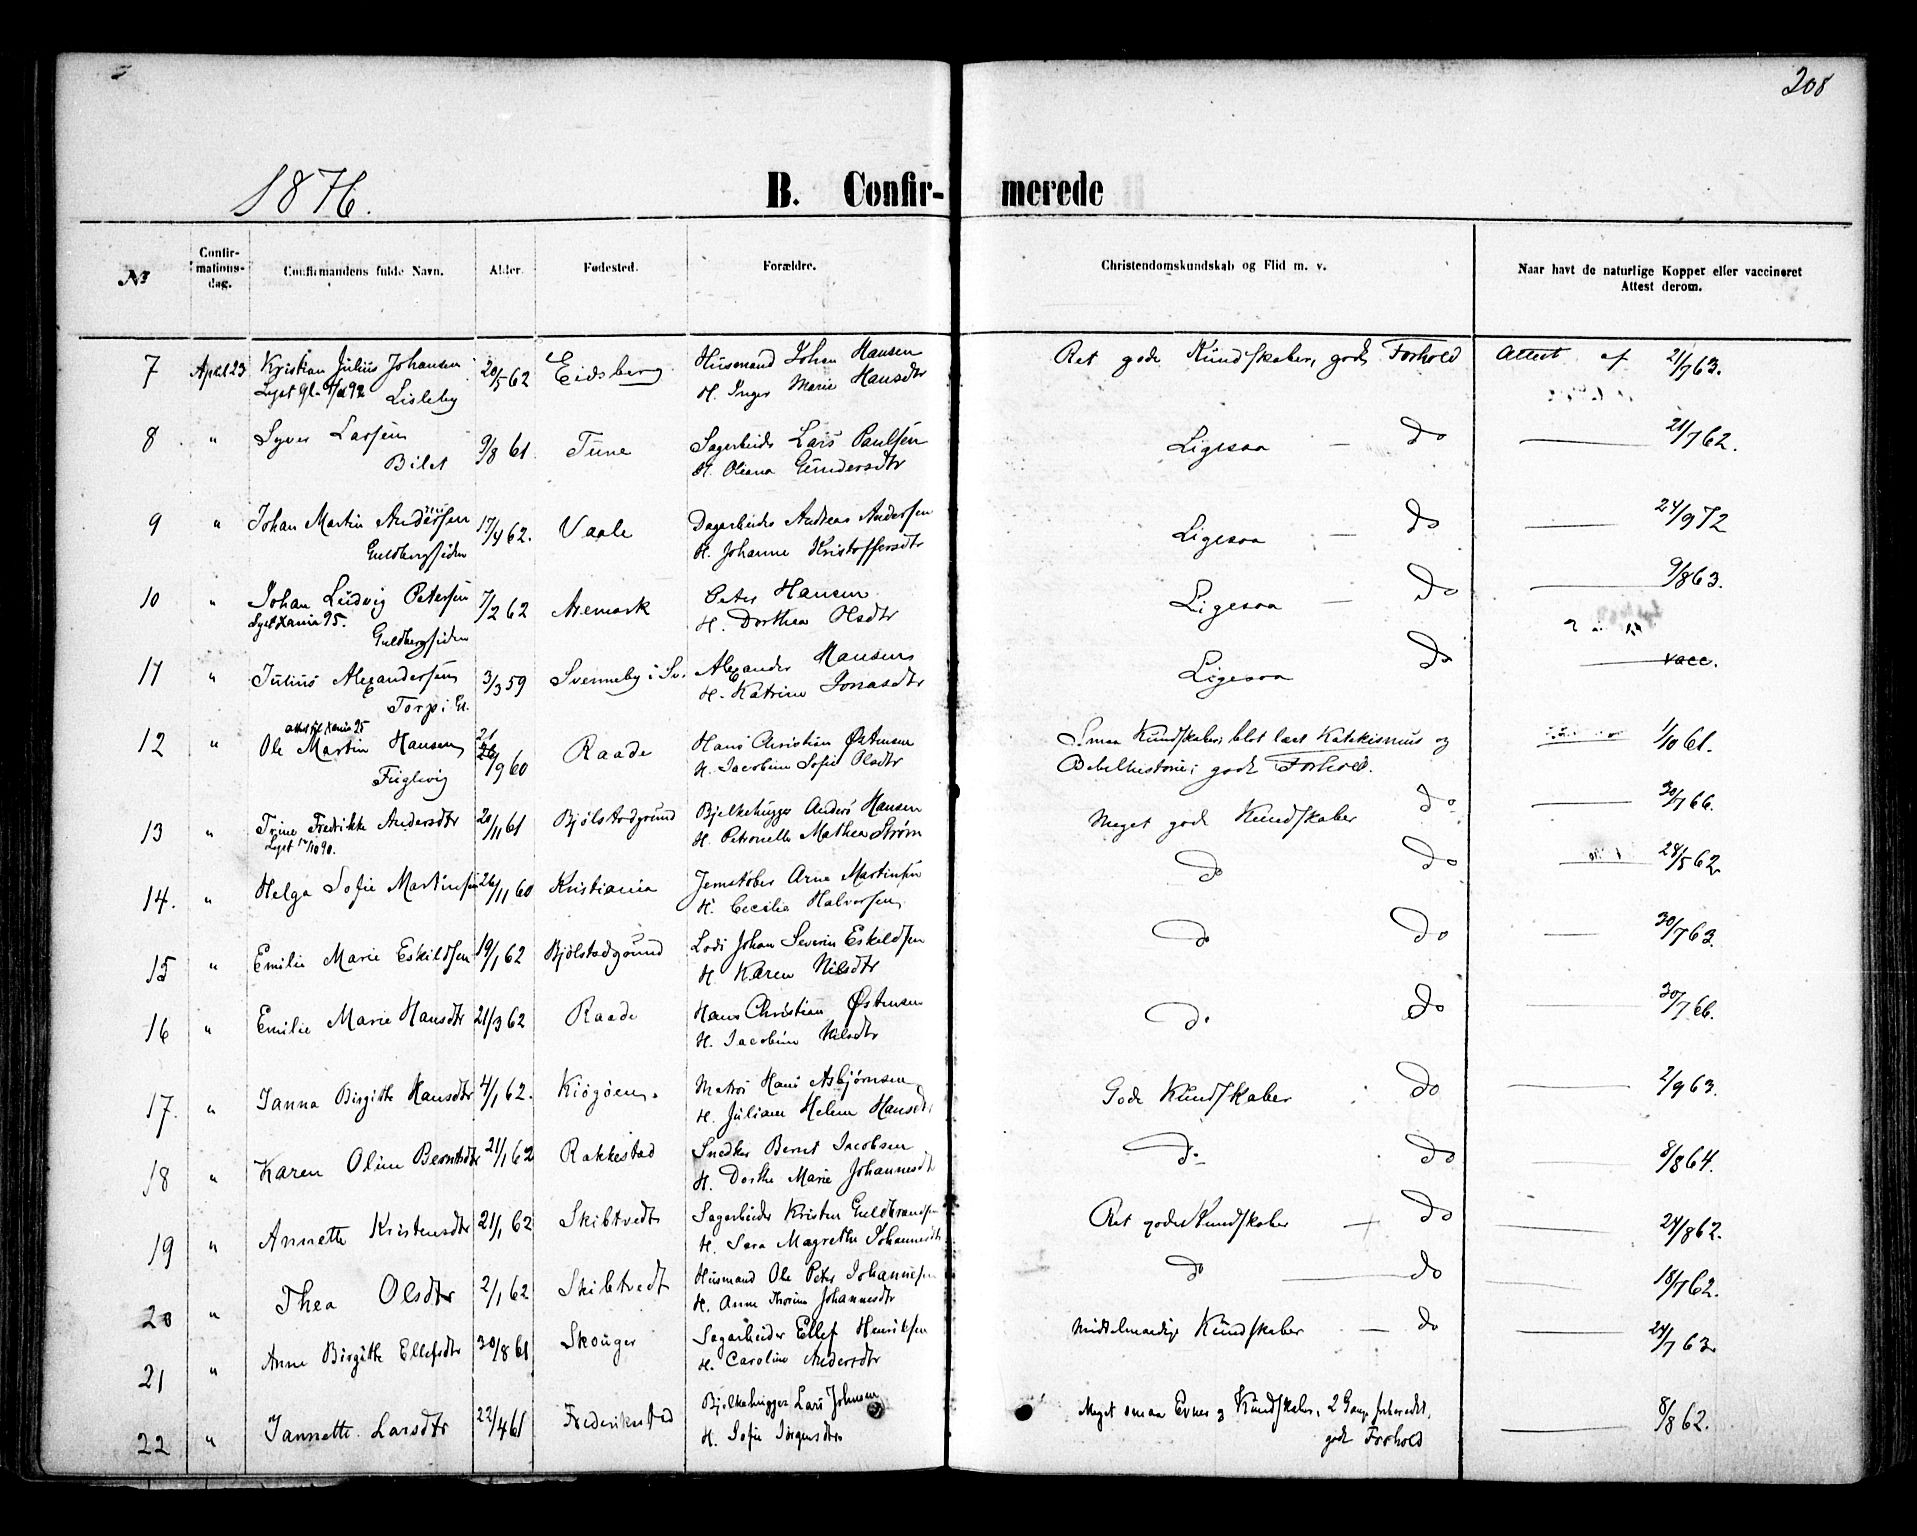 208
1876.
B. Confir- merede
№ Confir-mations-dag. Confirmandens fulde Navn. Alder. Fødested. Forældre. Christendomskundskab og Flid m. v. Naar havt de naturlige Kopper eller vaccineret Attest derom.
7 April 23 Kristian Julius Johansen 20/5 62 Eidsberg Husmand Johan Hansen Ret gode Kundskaber, godt Forhold Attest af 21/7 63.
Lisleby H. Inger Marie Hansdtr
8 " Syver Larsen 9/8 61. Tune Sagarbeider Lars Paulsen Ligesaa — do 21/7 62.
Bilet H. Oleana Gundersdtr
9 " Johan Martin Andersen 17/4 62. Vaale Dagarbeider Andreas Andersen Ligesaa — do 24/9 72
Guldbergsiden H. Johanne Kristoffersdtr
10 " Johan Ludvig Petersen 7/2 62 Aremark Peter Hansen Ligesaa — do 9/8 63.
Lyst Xania 95. Guldbergsiden H. Dorthea Olsdtr
11 " Julius Alexandersen 3/3 59 Svenneby i Sv. Alexander Hansen Ligesaa do vacc.
Torp i H. Katrine Jonasdtr
12 " Ole Martin Hansen 26/9 60 Raade Hans Christian Østensen Smaa Kundskaber, blot læst Katekismus og 1/10 61.
Fuglevig H. Jacobine Sofie Olsdtr Bibelhistorie; godt Forhold.
13 " Trine Fredrikke Andersdtr 20/11 61 Bjølstadgrund Bjelkehugger Anders Hansen Meget gode Kundskaber do 30/7 66.
Lyst 12/10 90. H. Petronelle Mathea Strøm
14. " Helga Sofie Martinsen 26/11 60 Kristiania Arne Martinsen do do 28/5 62
H. Cecilie Halvorsen
15 " Emilie Marie Eskildsen 19/1 62 Bjølstadgrund Lods Johan Severin Eskildsen do do 30/7 63.
H. Karen Nilsdtr
16 " Emilie Marie Hansdtr 21/3 62 Raade Hans Christian Østensen do do 30/7 66.
H. Jacobine Nilsdtr
17. " Janna Birgitte Hansdtr 4/1 62. Kiøgøen. Matros Hans Asbjørnsen Gode Kundskaber do 2/9 63.
H. Juliane Helene Hansdtr
18 " Karen Oline Berntsdtr 21/1 62 Rakkestad Snedker Bernt Jacobsen do do 8/8 64.
H. Dorthe Marie Johannesdtr
19 " Annette Kristensdtr 21/1 62 Skibtvedt Sagarbeider Kristen Guldbrandsen Ret gode Kundskaber — do 24/8 62.
H. Sara Magrethe Johannesdtr
20 " Thea Olsdtr 2/1 62 Skibtvedt Husmand Ole Peter Johannesen do — do 18/7 62.
H. Anne Thorine Johannesdtr
21 " Anne Birgitte Ellefsdtr 30/8 61 Skouger Sagarbeider Ellef Henriksen Middelmaadige Kundskaber — do 24/7 63
H. Caroline Andersdtr
22 " Jannette Larsdtr 22/4 61 Frederikstad Bjelkehugger Lars Johnsen Meget smaa Evner og Kundskaber, 2 Gange forberedt, 8/8 62.
H. Sofie Jørgensdtr godt Forhold